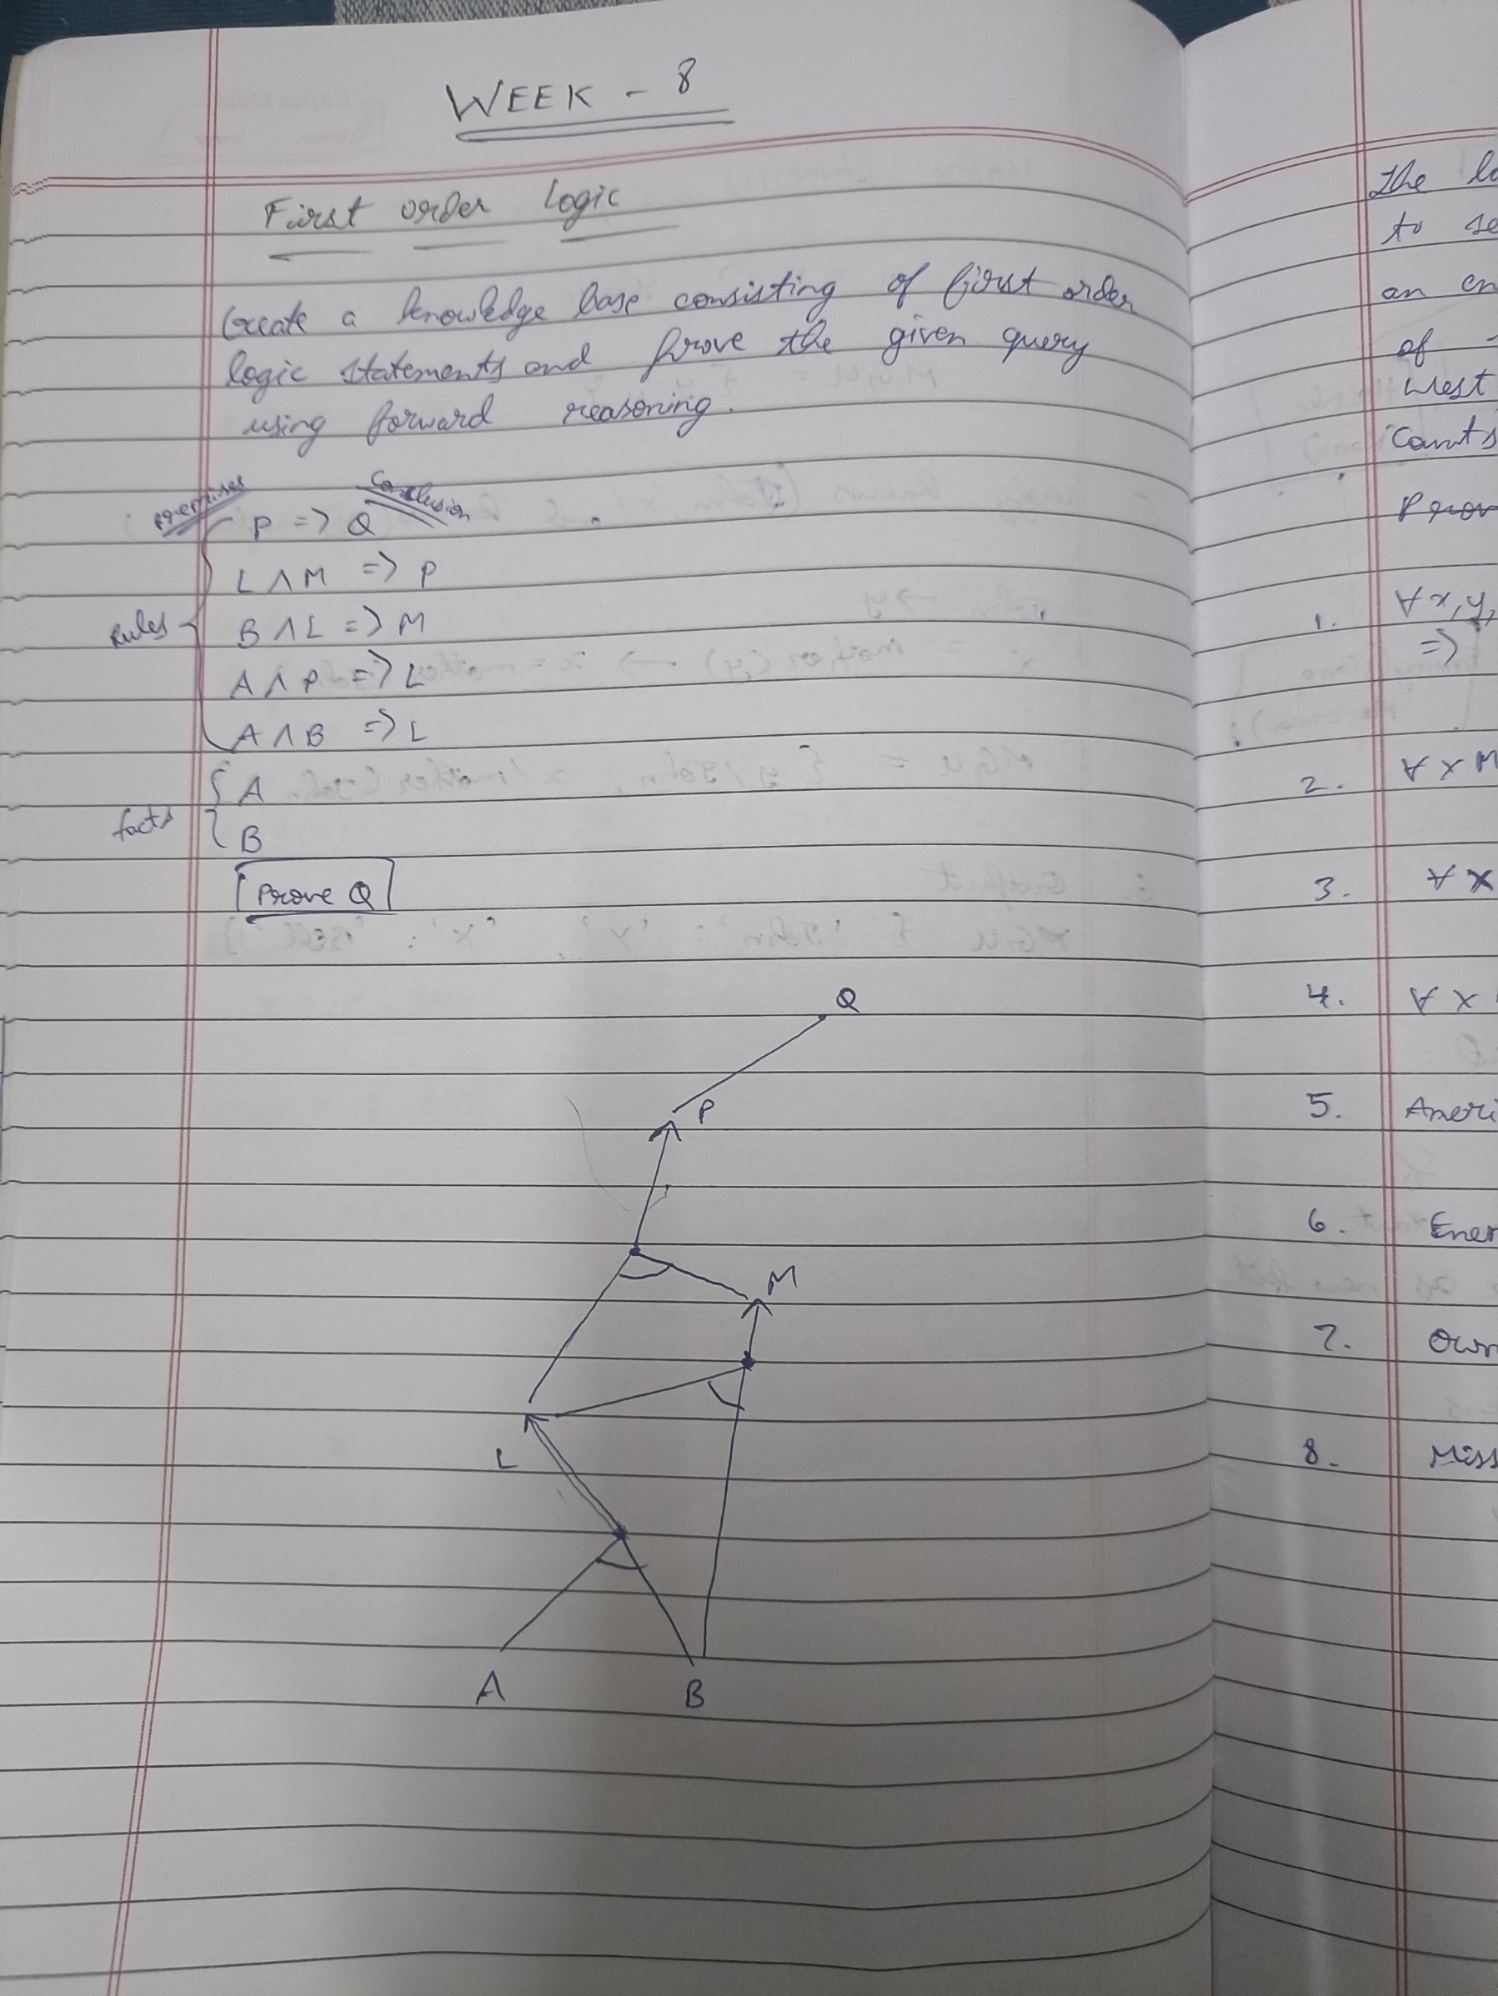 WEEK - 8
First order logic
Create a knowledge base consisting of first order
logic statements and prove the given query
using forward reasoning.
premises Conclusion
P => Q
L ∧ M => P
Rules
B ∧ L => M
A ∧ P => L
A ∧ B => L
A
facts
B
Prove Q
Q
P
M
L
A B
The
to se
an en
of
West
Prov
1. ∀x,y,
=>
2. ∀ x M
3. ∀ x
4. ∀ x
5. Ameri
6. Enem
7. Own
8. Miss